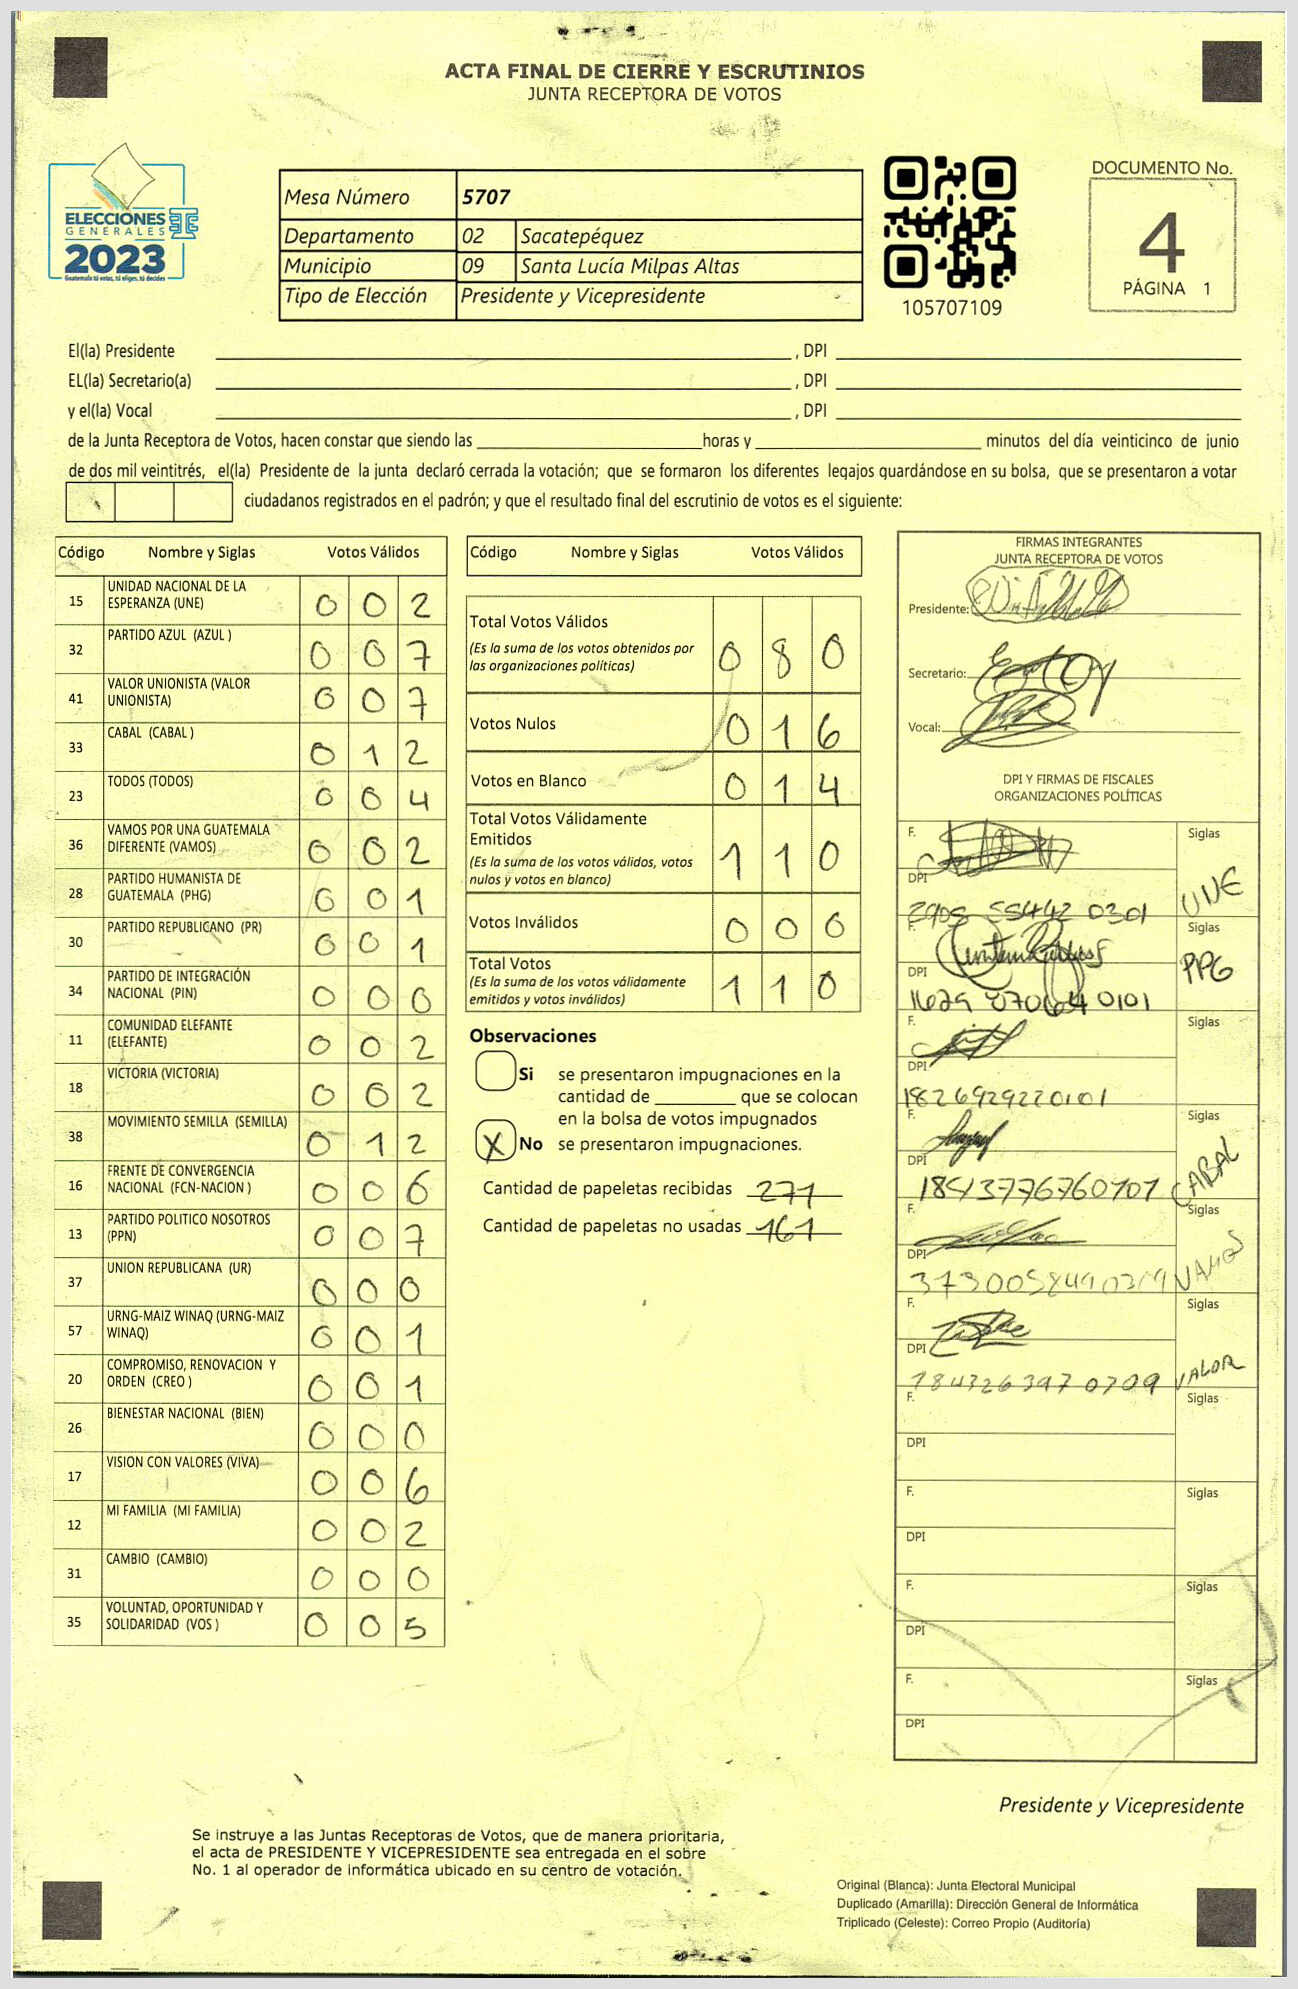 ACTA FINAL DE CIERRE Y ESCRUTINIOS
JUNTA RECEPTORA DE VOTOS
ELECCIONES
GENERALES
2023
Guatemala tú votas, tú eliges, tú decides
Mesa Número 5707
Departamento 02 Sacatepéquez
Municipio 09 Santa Lucía Milpas Altas
Tipo de Elección Presidente y Vicepresidente
105707109
DOCUMENTO No.
4
PÁGINA 1
El(la) Presidente , DPI
EL(la) Secretario(a) , DPI
y el(la) Vocal , DPI
de la Junta Receptora de Votos, hacen constar que siendo las horas y minutos del día veinticinco de junio
de dos mil veintitrés, el(la) Presidente de la junta declaró cerrada la votación; que se formaron los diferentes legajos quardándose en su bolsa, que se presentaron a votar
ciudadanos registrados en el padrón; y que el resultado final del escrutinio de votos es el siguiente:
Código Nombre y Siglas Votos Válidos
15 UNIDAD NACIONAL DE LA ESPERANZA (UNE) 0 0 2
32 PARTIDO AZUL (AZUL ) 0 0 7
41 VALOR UNIONISTA (VALOR UNIONISTA) 0 0 7
33 CABAL (CABAL ) 0 1 2
23 TODOS (TODOS) 0 0 4
36 VAMOS POR UNA GUATEMALA DIFERENTE (VAMOS) 0 0 2
28 PARTIDO HUMANISTA DE GUATEMALA (PHG) 0 0 1
30 PARTIDO REPUBLICANO (PR) 0 0 1
34 PARTIDO DE INTEGRACIÓN NACIONAL (PIN) 0 0 0
11 COMUNIDAD ELEFANTE (ELEFANTE) 0 0 2
18 VICTORIA (VICTORIA) 0 0 2
38 MOVIMIENTO SEMILLA (SEMILLA) 0 1 2
16 FRENTE DE CONVERGENCIA NACIONAL (FCN-NACION ) 0 0 6
13 PARTIDO POLITICO NOSOTROS (PPN) 0 0 7
37 UNION REPUBLICANA (UR) 0 0 0
57 URNG-MAIZ WINAQ (URNG-MAIZ WINAQ) 0 0 1
20 COMPROMISO, RENOVACION Y ORDEN (CREO ) 0 0 1
26 BIENESTAR NACIONAL (BIEN) 0 0 0
17 VISION CON VALORES (VIVA) 0 0 6
12 MI FAMILIA (MI FAMILIA) 0 0 2
31 CAMBIO (CAMBIO) 0 0 0
35 VOLUNTAD, OPORTUNIDAD Y SOLIDARIDAD (VOS ) 0 0 5
Código Nombre y Siglas Votos Válidos
Total Votos Válidos 0 8 0
(Es la suma de los votos obtenidos por
las organizaciones políticas)
Votos Nulos 0 1 6
Votos en Blanco 0 1 4
Total Votos Válidamente
Emitidos 1 1 0
(Es la suma de los votos válidos, votos
nulos y votos en blanco)
Votos Inválidos 0 0 0
Total Votos 1 1 0
(Es la suma de los votos válidamente
emitidos y votos inválidos)
Observaciones
Si se presentaron impugnaciones en la
cantidad de que se colocan
en la bolsa de votos impugnados
X No se presentaron impugnaciones.
Cantidad de papeletas recibidas 271
Cantidad de papeletas no usadas 161
FIRMAS INTEGRANTES
JUNTA RECEPTORA DE VOTOS
Presidente:
Secretario:
Vocal:
DPI Y FIRMAS DE FISCALES
ORGANIZACIONES POLÍTICAS
F. Siglas
DPI UNE
55442 0301
F. Siglas
DPI PPG
0101
F. Siglas
DPI
1826929220101
F. Siglas
DPI CABAL
F. Siglas
DPI VAMOS
F. Siglas
DPI VALOR
1843263970709
F. Siglas
DPI
F. Siglas
DPI
F. Siglas
DPI
F. Siglas
DPI
Presidente y Vicepresidente
Se instruye a las Juntas Receptoras de Votos, que de manera prioritaria,
el acta de PRESIDENTE Y VICEPRESIDENTE sea entregada en el sobre
No. 1 al operador de informática ubicado en su centro de votación.
Original (Blanca): Junta Electoral Municipal
Duplicado (Amarilla): Dirección General de Informática
Triplicado (Celeste): Correo Propio (Auditoría)